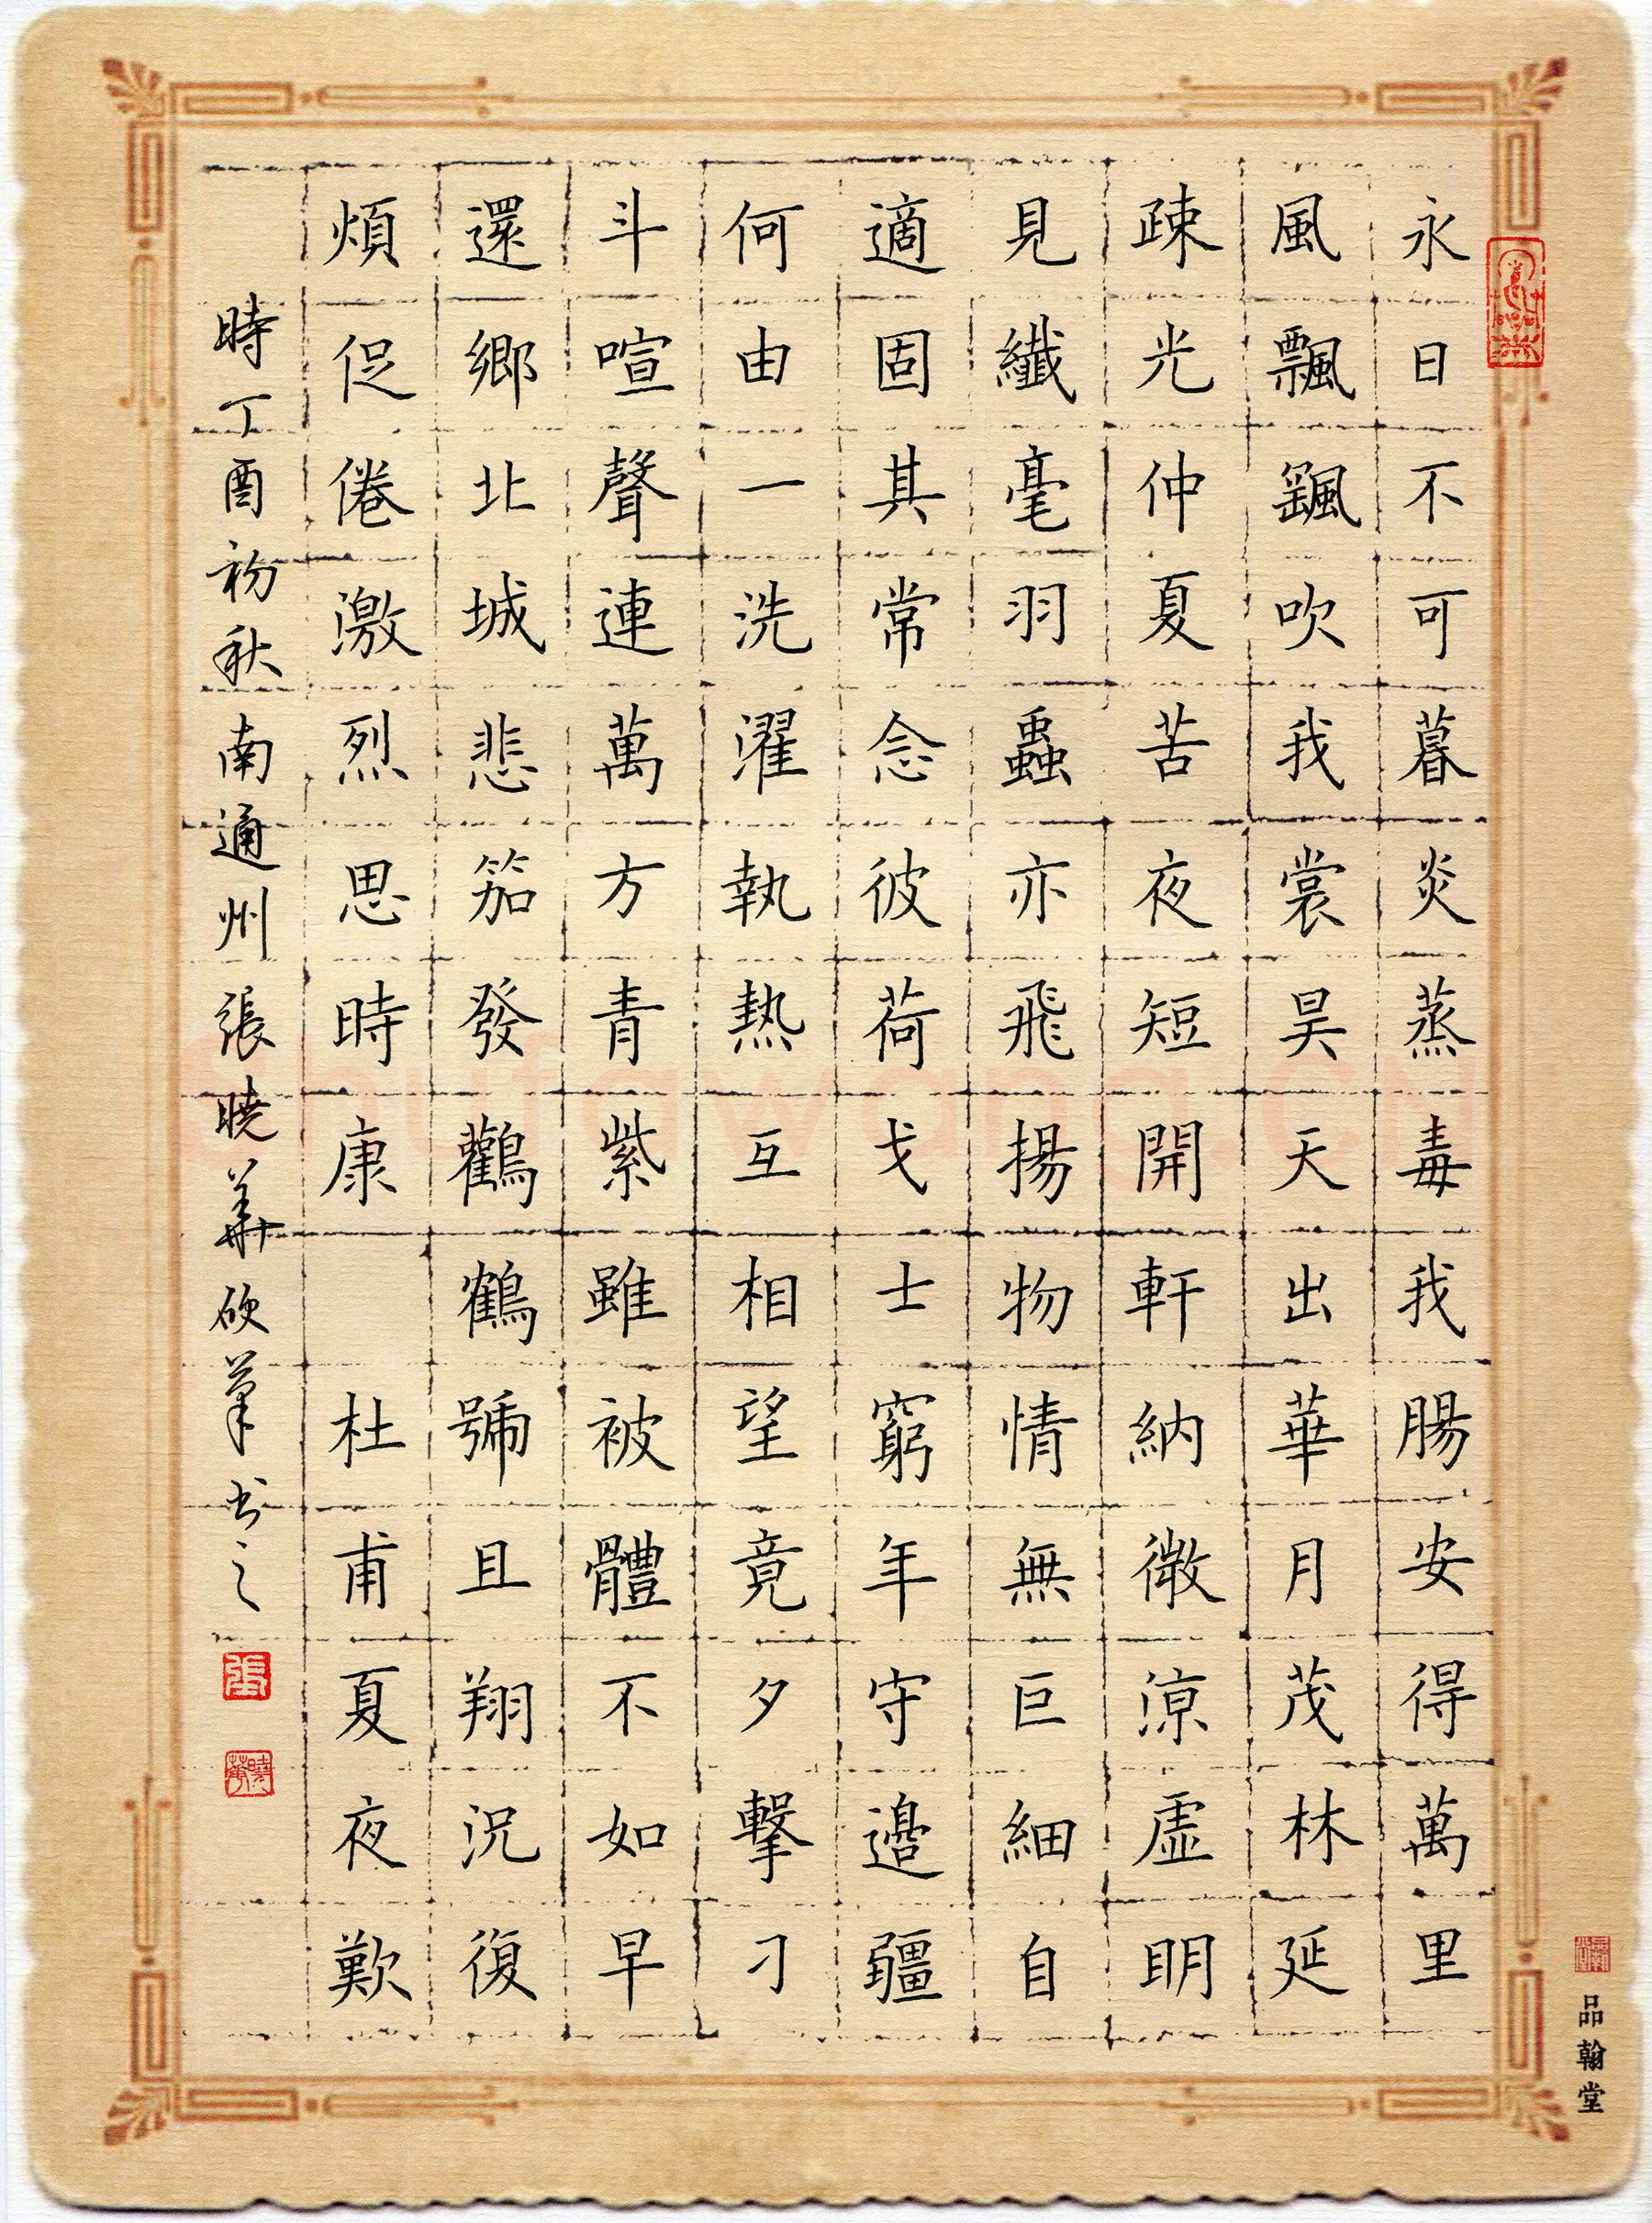 永日不可暮炎蒸毒我腸安得萬里
風飄颻吹我裳昊天出華月茂林延
疎光仲夏苦夜短開軒納微涼虛明
見纖毫羽蟲亦飛揚物情無巨細自
適固其常念彼荷戈士窮年守邊疆
何由一洗濯執熱互相望竟夕擊刁
斗喧聲連萬方青紫雖被體不如早
還鄉北城悲笳發鸛鶴號且翔況復
煩促倦激烈思時康 杜甫夏夜歎
時丁酉初秋南通州張曉華欣筆书之
張
曉華
品翰堂